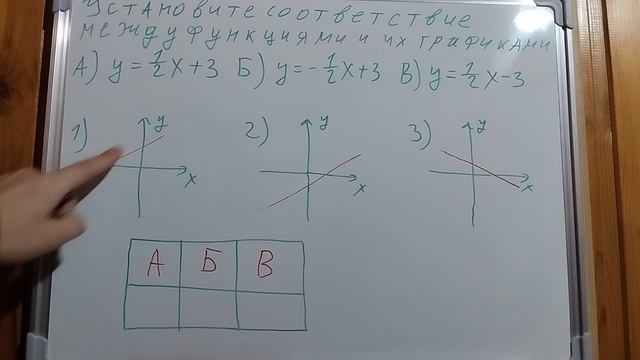 Установите соответствие
между функциями и их графиками
А) y = 1/2 x + 3 Б) y = - 1/2 x + 3 В) y = 1/2 x - 3
1) y x 2) y x 3) y x
А Б В